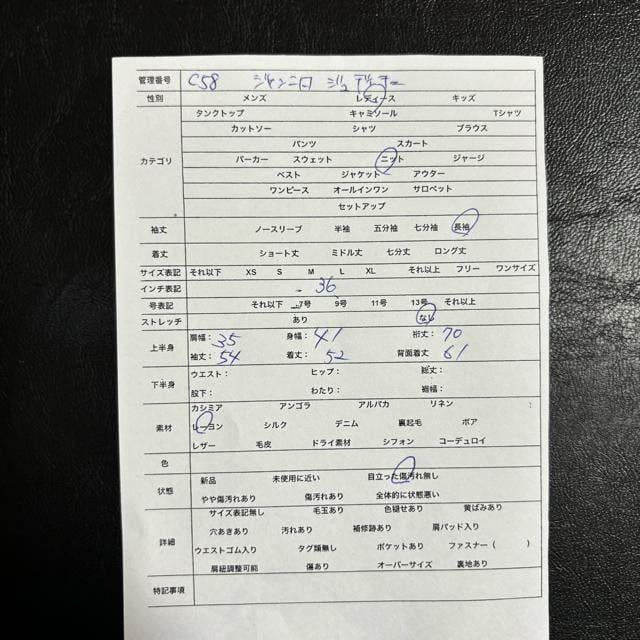 管理番号 C58 ジャンニロ ジュディチー
性別 メンズ レディース キッズ
タンクトップ キャミソール Tシャツ
カットソー シャツ ブラウス
パンツ スカート
カテゴリ パーカー スウェット ニット ジャージ
ベスト ジャケット アウター
ワンピース オールインワン サロペット
セットアップ
袖丈 ノースリーブ 半袖 五分袖 七分袖 長袖
着丈 ショート丈 ミドル丈 七分丈 ロング丈
サイズ表記 それ以下 XS S M L XL それ以上 フリー ワンサイズ
インチ表記 36
号表記 それ以下 7号 9号 11号 13号 それ以上
ストレッチ あり なし
上半身 肩幅: 35 身幅: 41 裄丈: 70
袖丈: 54 着丈: 52 背面着丈 61
下半身 ウエスト: ヒップ: 総丈:
股下: わたり: 裾幅:
カシミア アンゴラ アルパカ リネン :
素材 レーヨン シルク デニム 裏起毛 ボア
レザー 毛皮 ドライ素材 シフォン コーデュロイ
色
状態 新品 未使用に近い 目立った傷汚れ無し
やや傷汚れあり 傷汚れあり 全体的に状態悪い
サイズ表記無し 毛玉あり 色褪せあり 黄ばみあり
詳細 穴あきあり 汚れあり 補修跡あり 肩パッド入り
ウエストゴム入り タグ類無し ポケットあり ファスナー ( )
肩紐調整可能 傷あり オーバーサイズ 裏地あり
特記事項